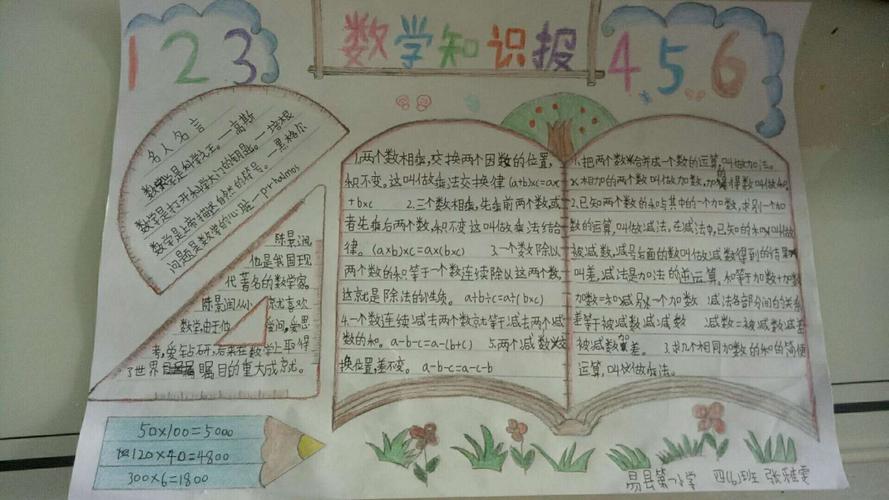 1 2 3
数学知识报
4.5.6
名人名言
数学是科学之王。—高斯
数学是打开科学大门的钥匙。—培根
数学是上帝描述自然的符号。—黑格尔
问题是数学的心脏—prhalmos
陈景润
他是我国现
代著名的数学家。
陈景润从小就喜欢
数学,由于他爱问,爱思
考,爱钻研,后来在数学上取得
了世界瞩目的重大成就。
50×100=5000
120×40=4800
300×6=1800
1.两个数相乘,交换两个因数的位置,
积不变。这叫做乘法交换律(a+b)×c=a×
+b×c 2.三个数相乘,先乘前两个数,或
者先乘后两个数,积不变这叫做乘法结合
律。(a×b)×c=a×(b×c) 3.一个数除以
两个数的积等于一个数连续除以这两个数,
这就是除法的性质。a÷b÷c=a÷(b×c)
4.一个数连续减去两个数就等于减去两个减
数的和。a-b-c=a-(b+c) 5.两个减数交
换位置,差不变。a-b-c=a-c-b
1.把两个数合并成一个数的运算,叫做加法。
相加的两个数叫做加数,加得的数叫做和。
2.已知两个数的和与其中的一个加数,求另一个加
数的运算,叫做减法。在减法中,已知的和叫做
被减数,减号后面的数叫做减数得到的结果
叫差,减法是加法的逆运算,和等于加数+加数
加数=和减另一个加数 减法各部分间的关系
差等于被减数减减数 减数=被减数减差
被减数加差。3.求几个相同加数的和的简便
运算,叫做乘法。
易县第一小学 四(6)班 张雅雯